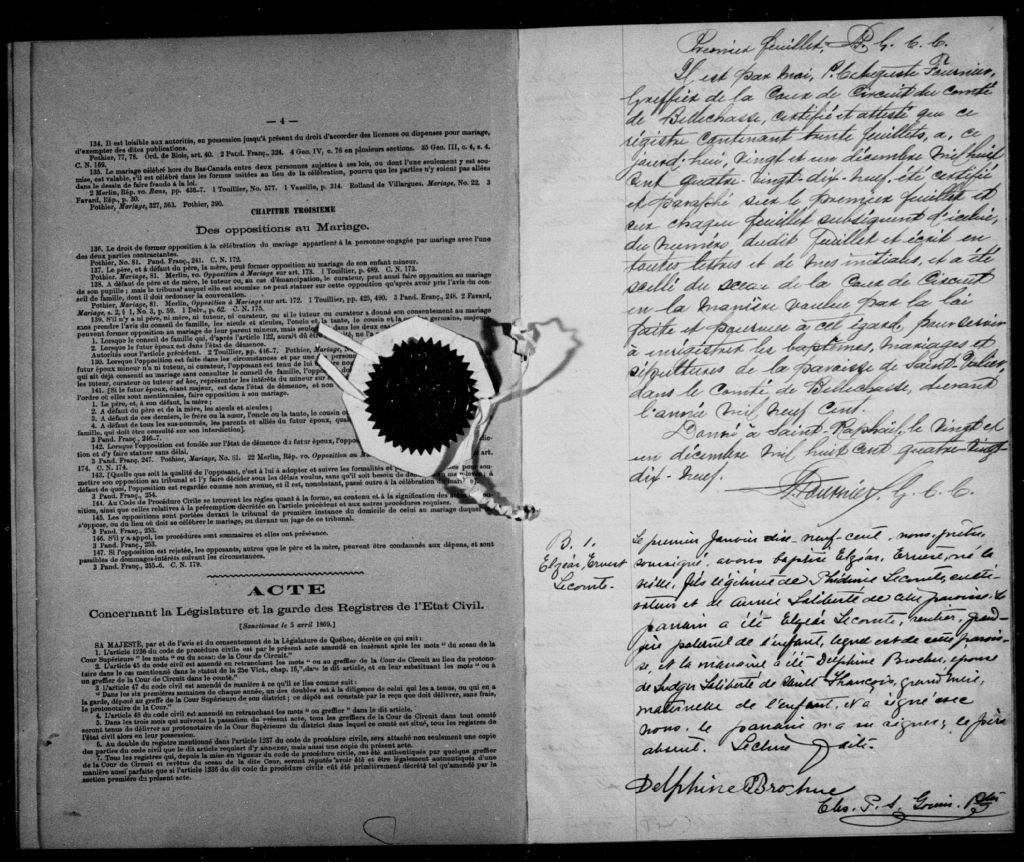 — 4 —
134. Il est loisible aux autorités, en possession jusqu'à présent du droit d'accorder des licences ou dispenses pour mariage,
d'exempter des dites publications.
Pothier, 77, 78. Ord. de Blois, art. 40. 2 Pand. Franç., 324. 4 Geo. IV, c. 76 en plusieurs sections. 35 Geo. III, c. 4, s. 4.
C. N. 169.
135. Le mariage célébré hors du Bas-Canada entre deux personnes sujettes à ses lois, ou dont l'une seulement y est sou-
mise, est valable, s'il est célébré dans les formes usitées au lieu de la célébration, pourvu que les parties n'y soient pas allées
dans le dessin de faire fraude à la loi.
2 Merlin, Rép. vo. Bans, pp. 436-7. 1 Touillier, No. 577. 1 Vazeille, p. 314. Rolland de Villargues. Mariage, No. 22. 3
Favard, Rép., p. 30.
Pothier, Mariage, 327, 363. Pothier, 390.
CHAPITRE TROISIEME
Des oppositions au Mariage.
136. Le droit de former opposition à la célébration du mariage appartient à la personne engagée par mariage avec l'une
des deux parties contractantes.
Pothier, No. 81. Pand. Franç., 241. C. N. 172.
137. Le père, et à défaut du père, la mère, peut former opposition au mariage de son enfant mineur.
Pothier, Mariage, 81. Merlin, vo. Opposition à Mariage sur art. 173. 1 Touillier, p. 489. C. N. 173.
138. A défaut de père et de mère, le tuteur ou, au cas d'émancipation, le curateur, peut aussi faire opposition au mariage
de son pupille ; mais le tribunal auquel elle est soumise ne peut statuer sur cette opposition qu'après avoir pris l'avis du con-
seil de famille, dont il doit ordonner la convocation.
Pothier, Mariage, 81. Merlin, Opposition à Mariage sur art. 172. 1 Touillier, pp. 425, 490. 3 Pand. Franç., 248. 2 Favard,
Mariage, s. 2, § 1, No. 3, p. 59. 1 Delv., p. 62. C. N. 175.
139. S'il n'y a ni père, ni mère, ni tuteur, ni curateur, ou si le tuteur ou curateur a donné son consentement au mariage
sans prendre l'avis du conseil de famille, les aïeuls et aïeules, l'oncle et la tante, le cousin et la germaine, majeurs
peuvent former opposition au mariage de leur parent mineur, mais seulement dans les deux cas
1. Lorsque le conseil de famille qui, d'après l'article 122, aurait dû
2. Lorsque le futur époux est dans l'état de démence.
Autorités sous l'article précédent. 2 Touillier, pp. 446-7. Pothier, Mariage,
140. Lorsque l'opposition est faite dans les circonstances et par une personne
futur époux mineur n'a ni tuteur, ni curateur, l'opposant est tenu de lui
qui ait déjà consenti au mariage sans consulter le conseil de famille, l'opposant
les tuteur, curateur ou tuteur ad hoc, représenter les intérêts du mineur sur
141. [Si le futur époux, étant majeur, est dans l'état de démence, et non
l'ordre où elles sont mentionnées, faire opposition à son mariage.
1. Le père, et, à son défaut, la mère ;
2. A défaut du père et de la mère, les aïeuls et aïeules ;
3. A défaut de ces derniers, le frère ou la sœur, l'oncle ou la tante, le cousin
4. A défaut de tous les sus-nommés, les parents et alliés du futur époux,
famille, qui doit être consulté sur son interdiction].
3 Pand. Franç., 246-7.
142. Lorsque l'opposition est fondée sur l'état de démence du futur époux,
tion et d'y faire statuer sans délai.
3 Pand. Franç. 247. Pothier, Mariage, No. 81. 22 Merlin, Rép. vo. Opposition
174. C. N. 174.
143. [Quelle que soit la qualité de l'opposant, c'est à lui à adopter et suivre les formalités et
mettre son opposition au tribunal et l'y faire décider sous les délais voulus, sans qu'il soit besoin de
défaut de quoi, l'opposition est regardée comme non avenue, et il est, nonobstant, passé outre à la célébration
3 Pand. Franç., 254.
144. Au Code de Procédure Civile se trouvent les règles quant à la forme, au contenu et à la signification des
sition, ainsi que celles relatives à la péremption décrétée en l'article précédent et aux autres procédures requises.
145. Les oppositions sont portées devant le tribunal de première instance du domicile de celui au mariage duquel
s'oppose, ou du lieu où doit se célébrer le mariage, ou devant un juge de ce tribunal.
3 Pand. Franç. 253.
146. S'il y a appel, les procédures sont sommaires et elles ont préséance.
3 Pand. Franç., 253.
147. Si l'opposition est rejetée, les opposants, autres que le père et la mère, peuvent être condamnés aux dépens, et sont
passibles de dommages-intérêts suivant les circonstances.
3 Pand. Franç., 255-6. C. N. 179.
ACTE
Concernant la Législature et la garde des Registres de l'Etat Civil.
[Sanctionne le 5 avril 1869.]
SA MAJESTÉ, par et de l'avis et du consentement de la Législature de Québec, décrète ce qui suit :
1. L'article 1236 du code de procédure civile est par le présent acte amendé en insérant après les mots " du sceau de la
Cour Supérieure " les mots " ou du sceau de la Cour de Circuit."
2. L'article 45 du code civil est amendé en retranchant les mots " ou au greffier de la Cour de Circuit au lieu du protono-
taire dans le cas mentionné dans le statut de la 25e Vict., chap. 16," dans le dit article, et en leur substituant les mots " ou à
un greffier de la Cour de Circuit dans le comté."
3 L'article 47 du code civil est amendé de manière à ce qu'il se lise comme suit :
" Dans les six premières semaines de chaque année, un des doubles est à la diligence de celui qui les a tenus, ou qui en a
la garde, déposé au greffe de la Cour Supérieure de son district ; ce dépôt est constaté par le reçu que doit délivrer, sans frais,
le protonotaire de la Cour."
4. L'article 48 du code civil est amendé en retranchant les mots " ou greffier " dans le dit article.
5. Dans les trois mois qui suivront la passation du présent acte, tous les greffiers de la Cour de Circuit dans tout comté
seront tenus de délivrer au protonotaire de la Cour Supérieure du district dans lequel ce comté est situé, tous les registres de
l'état civil alors en leur possession.
6. Au double du registre mentionné dans l'article 1237 du code de procédure civile, sera attaché non seulement une copie
des parties du code civil que le dit article requiert d'y annexer, mais aussi une copie du présent acte.
7. Tous les registres qui, depuis la mise en vigueur du code de procédure civile, ont été authentiqués par quelque greffier
de la Cour de Circuit et revêtus du sceau de la dite Cour, seront réputés avoir été et être légalement authentiqués d'une
manière aussi parfaite que si l'article 1236 du dit code de procédure civile eût été primitivement décrété tel qu'amendé par la
section première du présent acte.
Premier feuillet. P. G. C. C.
Il est par moi, P. Fournier,
Greffier de la Cour de Circuit du comté
de Bellechasse, certifié et attesté que ce
régistre contenant trente feuillets, a, ce
jourd'hui, vingt et un décembre mil huit
cent quatre-vingt-dix-neuf, été certifié
et paraphé sur le premier feuillet et
sur chaque feuillet subséquent d'icelui,
du numéro dudit feuillet et écrit en
toutes lettres et de mes initiales, et a été
scellé du sceau de la Cour de Circuit
en la manière voulue par la loi
faite et pourvue à cet égard, pour servir
à enregistrer les baptêmes, mariages et
sépultures de la paroisse de Saint
dans le Comté de Bellechasse, durant
l'année mil neuf cent.
Donné à Saint-Raphaël, le vingt et
un décembre mil huit cent quatre-vingt-
dix-neuf.
Fournier, G. C. C.
B. 1.
Elzéar, Ernest
Lecomte.
Le premier Janvier dix-neuf-cent, nous, prêtre
soussigné, avons baptisé Elzéar, Ernest, né la
veille, fils légitime de Phidime Lecomte, culti-
vateur et de Annie Laliberté de cette paroisse. Le
parrain a été Elzéar Lecomte, rentier, grand-
père paternel de l'enfant, lequel est de cette parois-
se, et la marraine a été Delphine Brochu, épouse
de Ludger Laliberté de Saint François, grand'mère,
maternelle de l'enfant, et a signé avec
nous. le parrain n'a su signer; le père
absent. Lecture faite.
Delphine Brochue
Chs. P. A. Gouin. Ptre